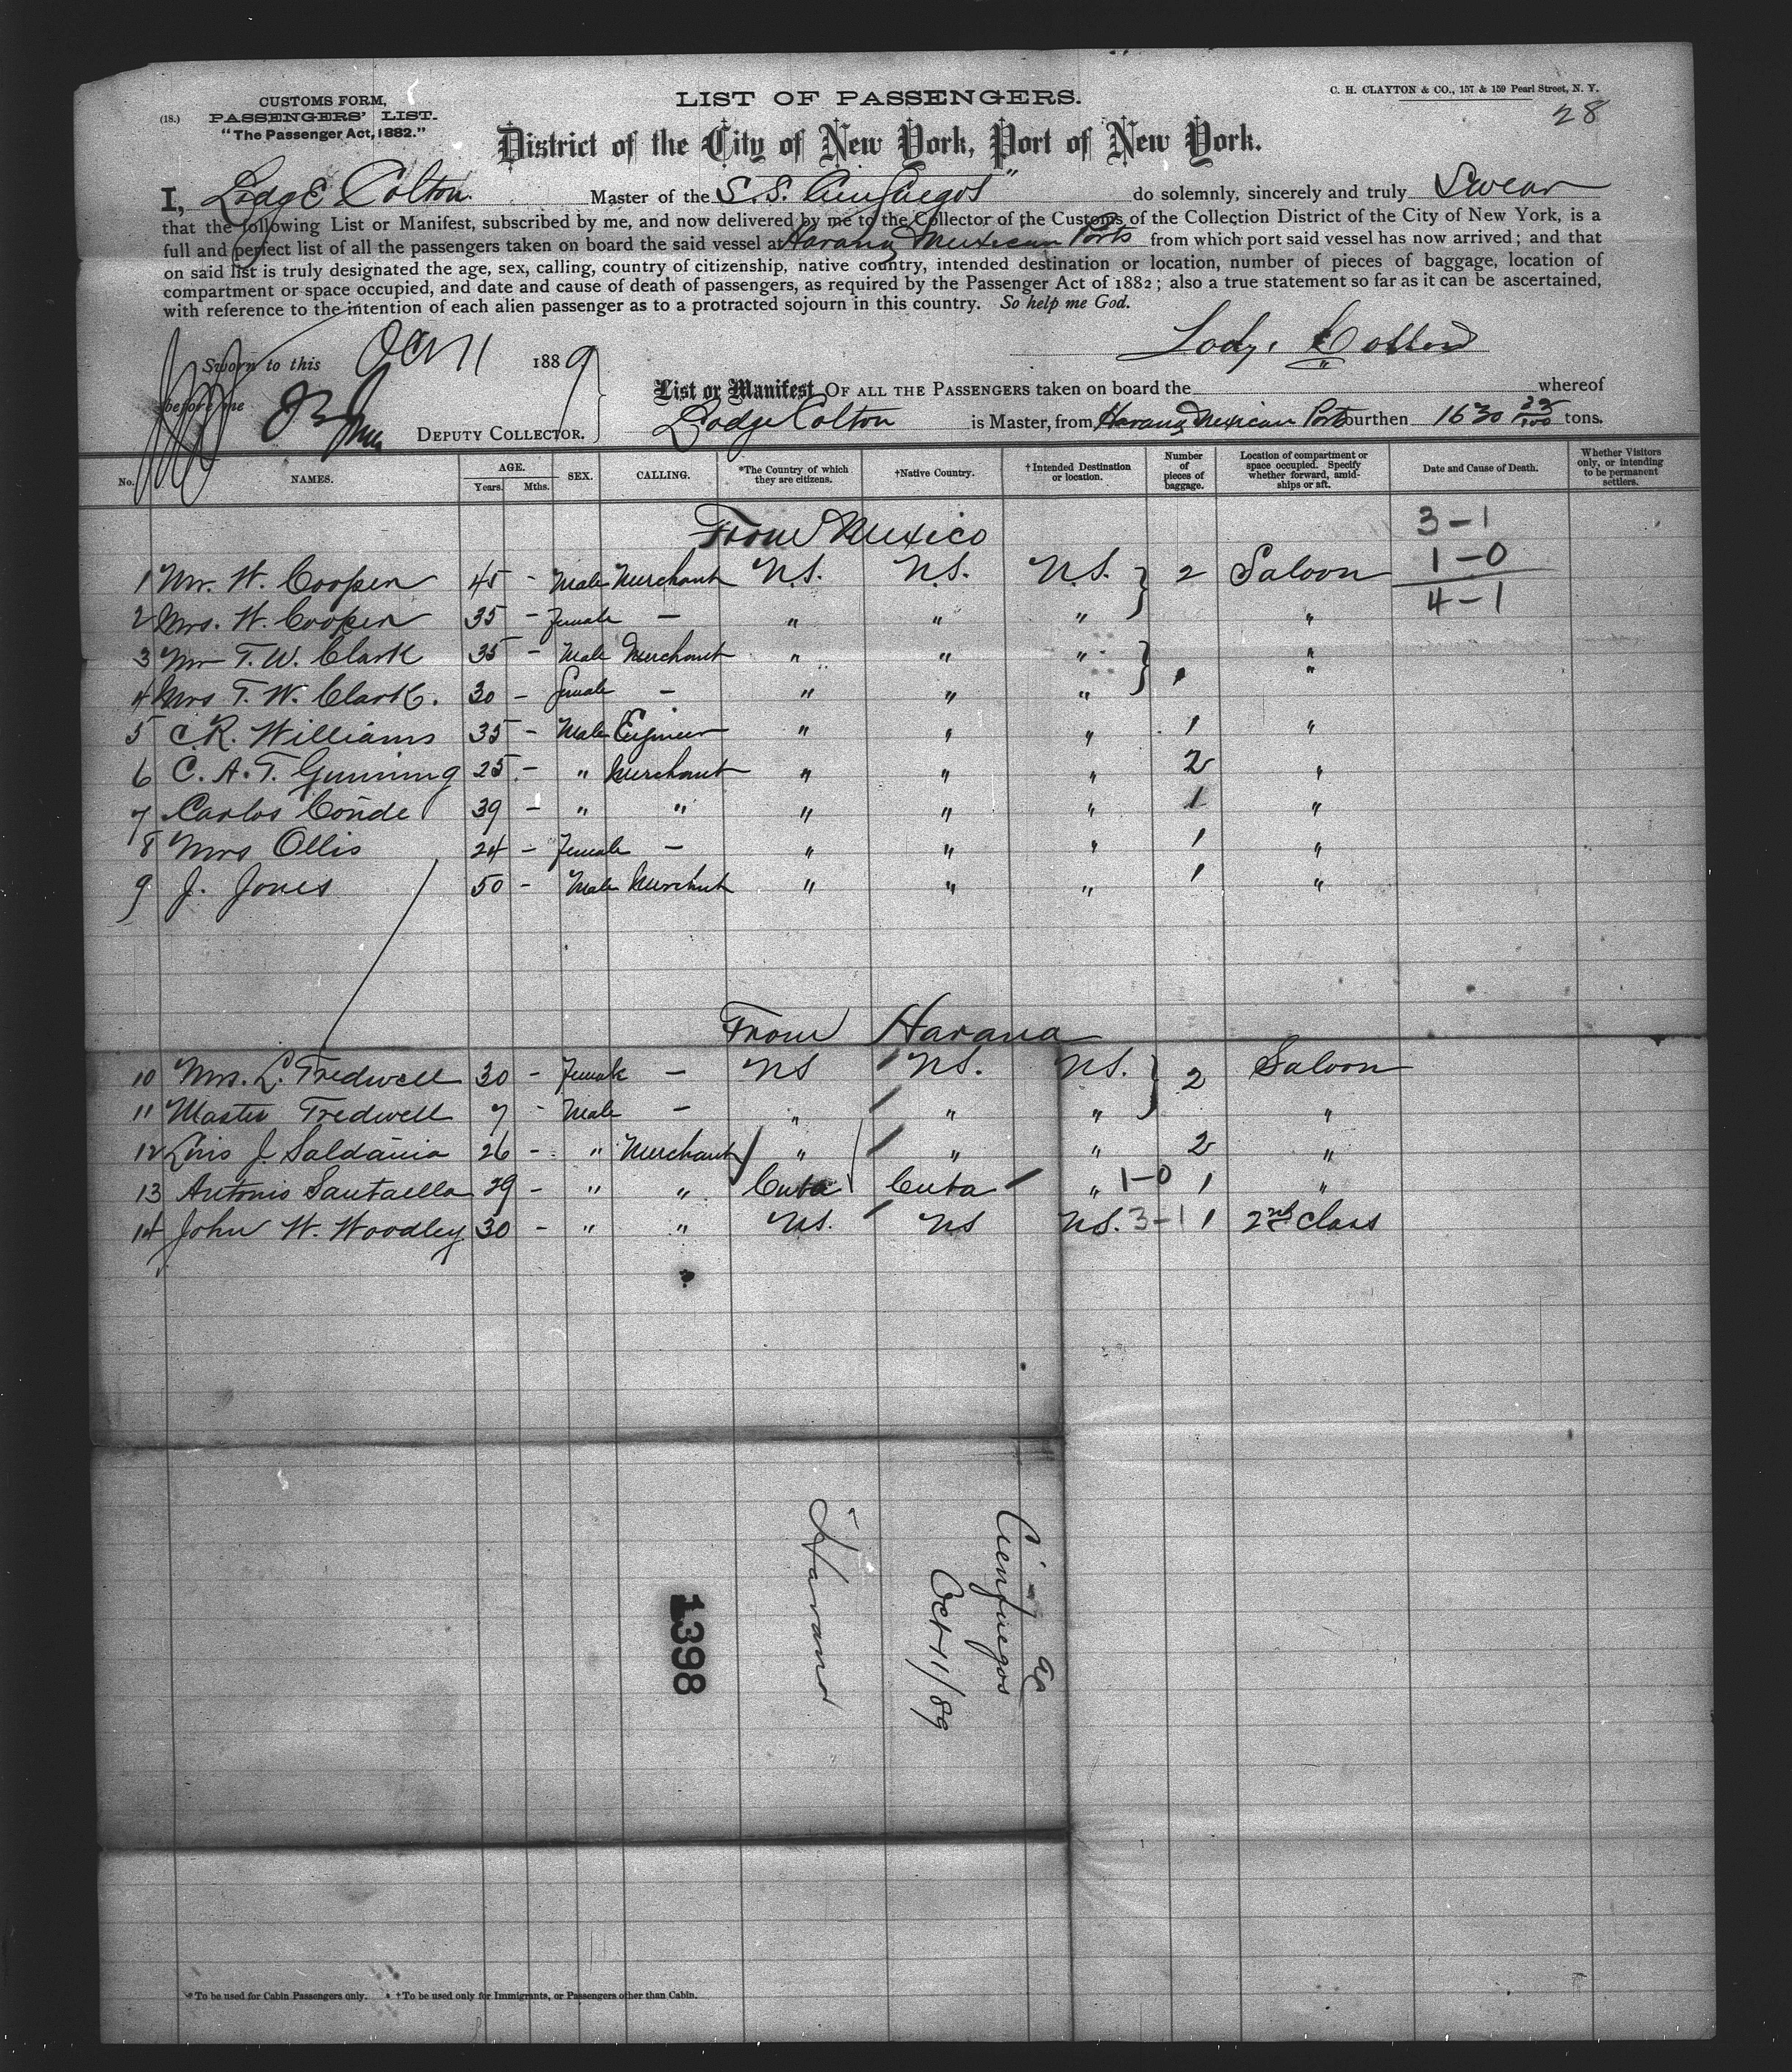 (18.)
CUSTOMS FORM,
PASSENGERS' LIST.
"The Passenger Act, 1882."
LIST OF PASSENGERS.
C. H. CLAYTON & CO., 157 & 159 Pearl Street, N. Y.
28
District of the City of New York, Port of New York.
I, Lodge Colton Master of the S.S. Cienfuegos" do solemnly, sincerely and truly Swear
that the following List or Manifest, subscribed by me, and now delivered by me to the Collector of the Customs of the Collection District of the City of New York, is a
full and perfect list of all the passengers taken on board the said vessel at Havana & Mexican Ports from which port said vessel has now arrived; and that
on said list is truly designated the age, sex, calling, country of citizenship, native country, intended destination or location, number of pieces of baggage, location of
compartment or space occupied, and date and cause of death of passengers, as required by the Passenger Act of 1882; also a true statement so far as it can be ascertained,
with reference to the intention of each alien passenger as to a protracted sojourn in this country. So help me God.
Sworn to this Oct 11 1889
Lodge Colton
before me
DEPUTY COLLECTOR.
List or Manifest OF ALL THE PASSENGERS taken on board the whereof
Lodge Colton is Master, from Havana & Mexican Ports burthen 1630 23/100 tons.
No. NAMES. AGE. Years. Mths. SEX. CALLING. *The Country of which they are citizens. †Native Country. †Intended Destination or location. Number of pieces of baggage. Location of compartment or space occupied. Specify whether forward, amidships or aft. Date and Cause of Death. Whether Visitors only, or intending to be permanent settlers.
From Mexico
3-1
1-0
4-1
1 Mr. W. Cooper 45 - Male Merchant U.S. U.S. U.S. } 2 Saloon
2 Mrs. W. Cooper 35 - Female - " " " "
3 Mr T. W. Clark 35 - Male Merchant " " " } 1 "
4 Mrs T. W. Clark. 30 - Female - " " " "
5 C. R. Williams 35 - Male Engineer " " " 1 "
6 C. A. T. Gunning 25 - " Merchant " " " 2 "
7 Carlos Conde 39 - " " " " " 1 "
8 Mrs Ollis 24 - Female - " " " 1 "
9 J. Jones 50 - Male Merchant " " " 1 "
From Havana
10 Mrs. L. Tredwell 30 - Female - US US. US. } 2 Saloon
11 Master Tredwell 7 - Male - " " " "
12 Luis J. Saldaña 26 - " Merchant " " " 2 "
13 Antonio Santaella 29 - " " Cuba Cuba " 1-0 1 "
14 John W. Woodley 30 - " " US. US US. 3-1 1 2nd Class
Cienfuegos
Oct 11/89
Havana
1398
*To be used for Cabin Passengers only. †To be used only for Immigrants, or Passengers other than Cabin.